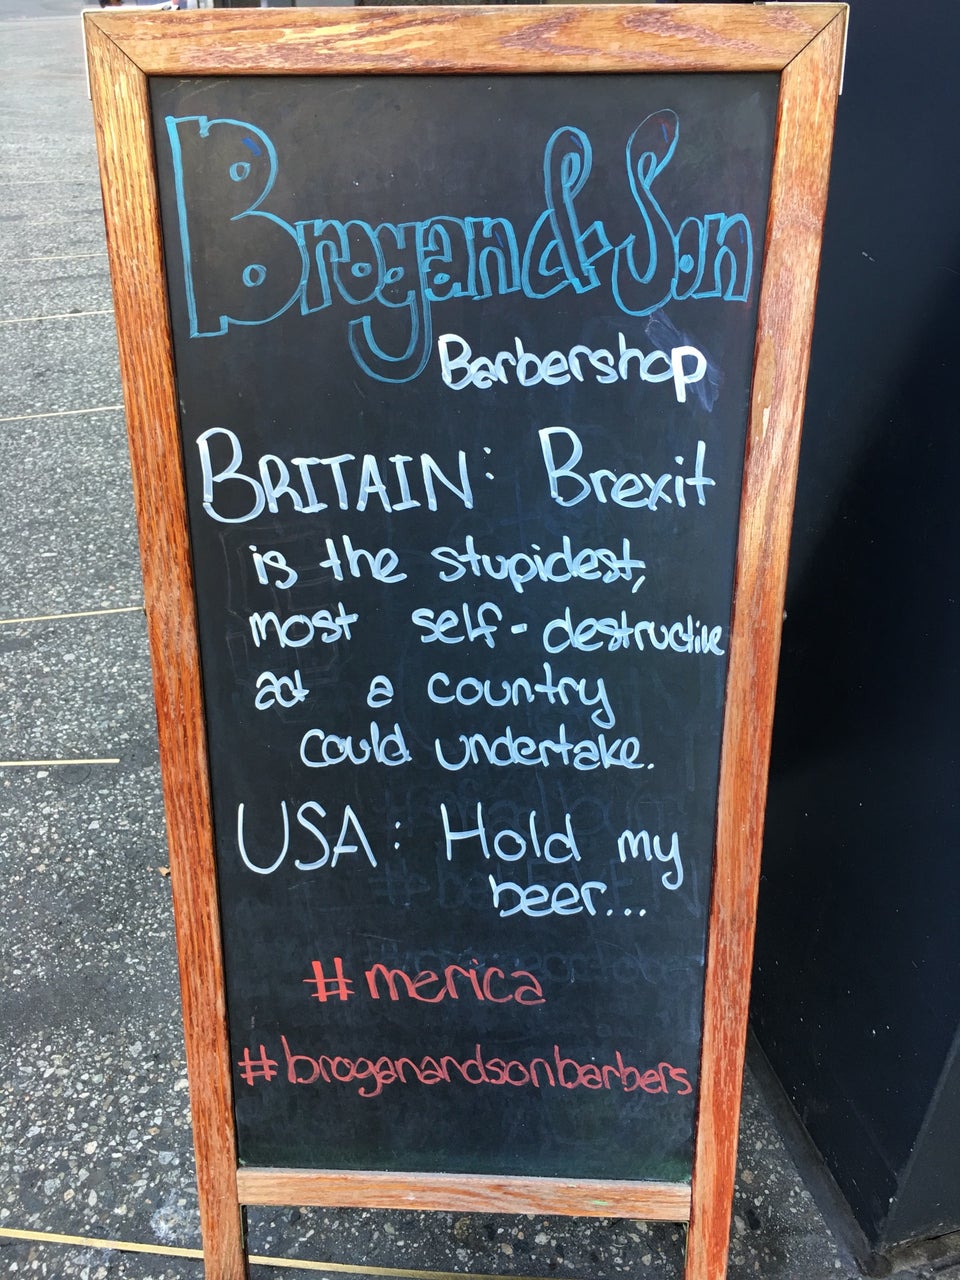 Brogan & Son
Barbershop
BRITAIN: Brexit
is the stupidest,
most self-destructive
act a country
could undertake.
USA: Hold my
beer...
#merica
#broganandsonbarbers